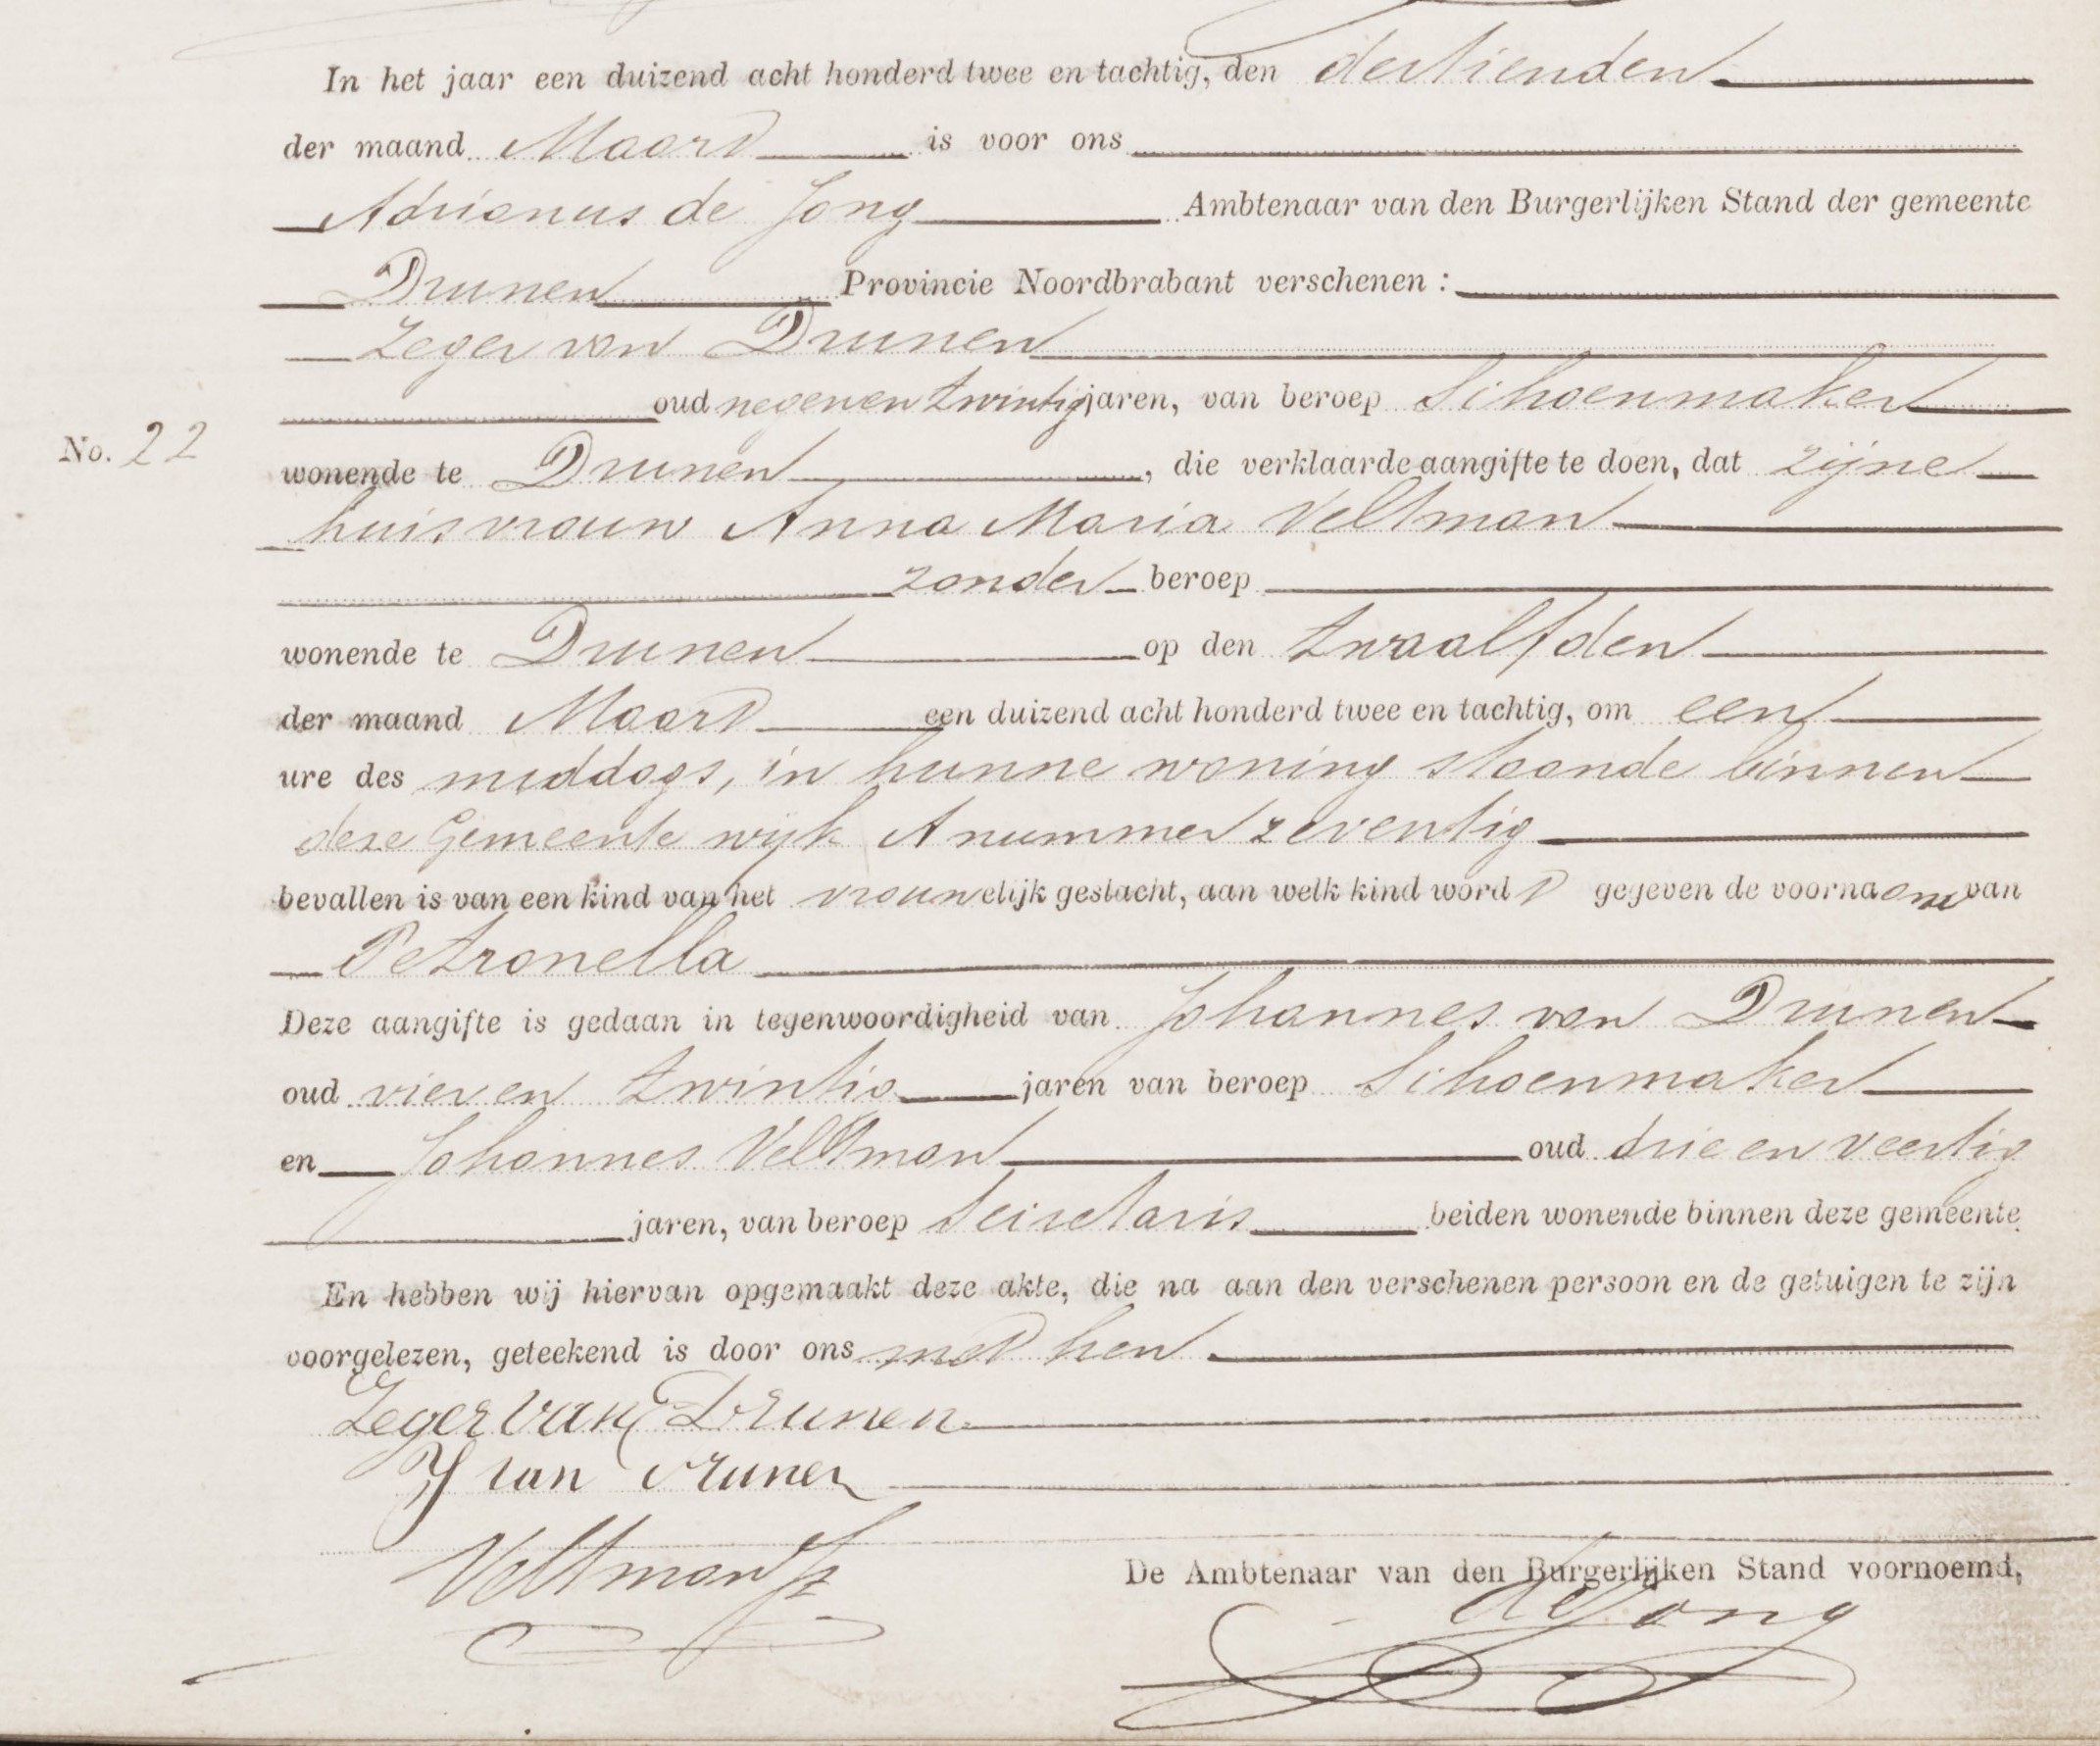 In het jaar een duizend acht honderd twee en tachtig, den dertienden
der maand Maart is voor ons
Adrianus de Jong Ambtenaar van den Burgerlijken Stand der gemeente
Drunen Provincie Noordbrabant verschenen :
Zeger van Drunen
oud negenen twintig jaren, van beroep Schoenmaker
No. 22
wonende te Drunen, die verklaarde aangifte te doen, dat zijne
huisvrouw Anna Maria Veltman
zonder beroep
wonende te Drunen op den twaalfden
der maand Maart een duizend acht honderd twee en tachtig, om een
ure des middags, in hunne woning staande binnen
deze Gemeente wijk A nummer zeventig
bevallen is van een kind van het vrouwelijk geslacht, aan welk kind wordt gegeven de voornaam van
Petronella
Deze aangifte is gedaan in tegenwoordigheid van Johannes van Drunen
oud vier en twintig jaren van beroep Schoenmaker
en Johannes Veltman oud drie en veertig
jaren, van beroep Secretaris beiden wonende binnen deze gemeente
En hebben wij hiervan opgemaakt deze akte, die na aan den verschenen persoon en de getuigen te zijn
voorgelezen, geteekend is door ons met hen.
Zeger van Drunen
J van Drunen
Veltman
De Ambtenaar van den Burgerlijken Stand voornoemd,
de Jong